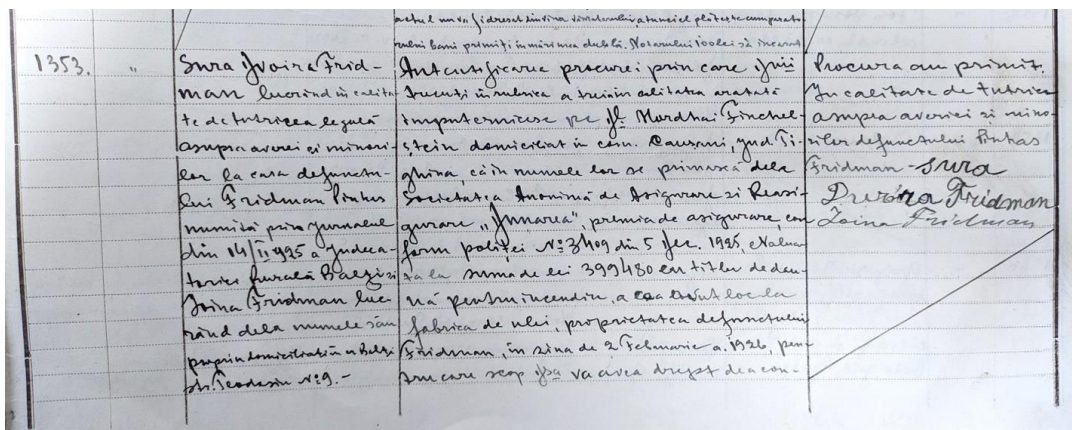 actul nu va fi dresat din vina vinzatorului, atunci el plăteste cumparato-
rului banii primiți în mărimea dublă. Notarului 100 lei să incasat
1353. "
Sura Dvoira Frid-
man lucrând în calita-
te de tutricea legală
asupra averei și minori-
lor la casa defunctu-
lui Fridman Pinhus
numită prin jurnalul
din 14/II 1925 a Judeca-
toriei Rurală Baltzi și
Ioina Fridman luc-
rând dela numele său
propriu domiciliați în or. Baltzi
str. Teodosin № 9.-
Autentificarea procurei prin care
trecuți în rubrica a treia în calitatea aratată
imputernicesc pe Mordhai Finchel-
ștein domiciliat în com. Causani, jud. Ti-
ghina, că în numele lor se primiască dela
Societatea Anonimă de Asigurare și Reasi-
gurare, premia de asigurare, con-
form poliței № 3409 din 5 1925,
ta la suma de lei 399480 en titlu de dau-
nă pentru incendiu, a avut loc la
fabrica de ulei, proprietatea defunctului
Fridman, în ziua de 2 Februarie a. 1926, pen-
tru care scop va avea drept de a con-
Procura am primit.
In calitate de tutrice
asupra averei și mino-
rilor defunctului Pinhas
Fridman - Sura
Dvoira Fridman
Ioina Fridman